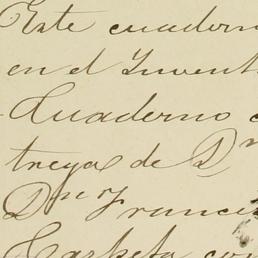 Este cuadern
en el Invent
Cuaderno c
trega de Dⁿ
Dⁿ Franci
Carpeta con